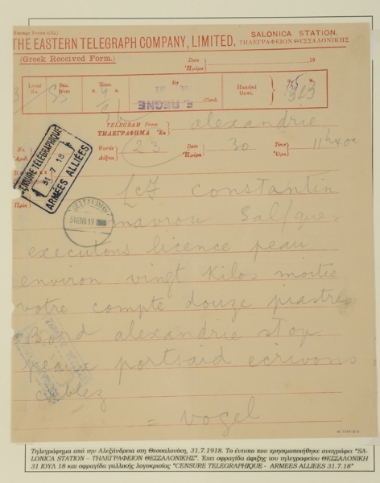 THE EASTERN TELEGRAPH COMPANY, LIMITED.
SALONICA STATION.
ΤΗΛΕΓΡΑΦΕΙΟΝ ΘΕΣΣΑΛΟΝΙΚΗΣ
(Greek Received Form.)
Date
19
TELEGRAM From
ΤΗΛΕΓΡΑΦΗΜΑ Ἐκ
alexandrie
Words 23
Date 30
Time
CENSURE TELEGRAPHIQUE
31-7-18
ARMEES ALLIÉES
constantin
mavrou Salique
executons licence peau
environ vingt Kilos moitie
votre compte douze piastres
Bord alexandrie stop
peaux portsaid ecrivons
cablez
= Vogel
Τηλεγράφημα από την Αλεξάνδρεια στη Θεσσαλονίκη, 31.7.1918. Το έντυπο που χρησιμοποιήθηκε αναγράφει "SA-
LONICA STATION – ΤΗΛΕΓΡΑΦΕΙΟΝ ΘΕΣΣΑΛΟΝΙΚΗΣ". Επί σφραγίδα άφιξης του τηλεγραφείου ΘΕΣΣΑΛΟΝΙΚΗ
31 ΙΟΥΛ 18 και σφραγίδα γαλλικής λογοκρισίας "CENSURE TELEGRAPHIQUE - ARMEES ALLIEES 31.7.18"